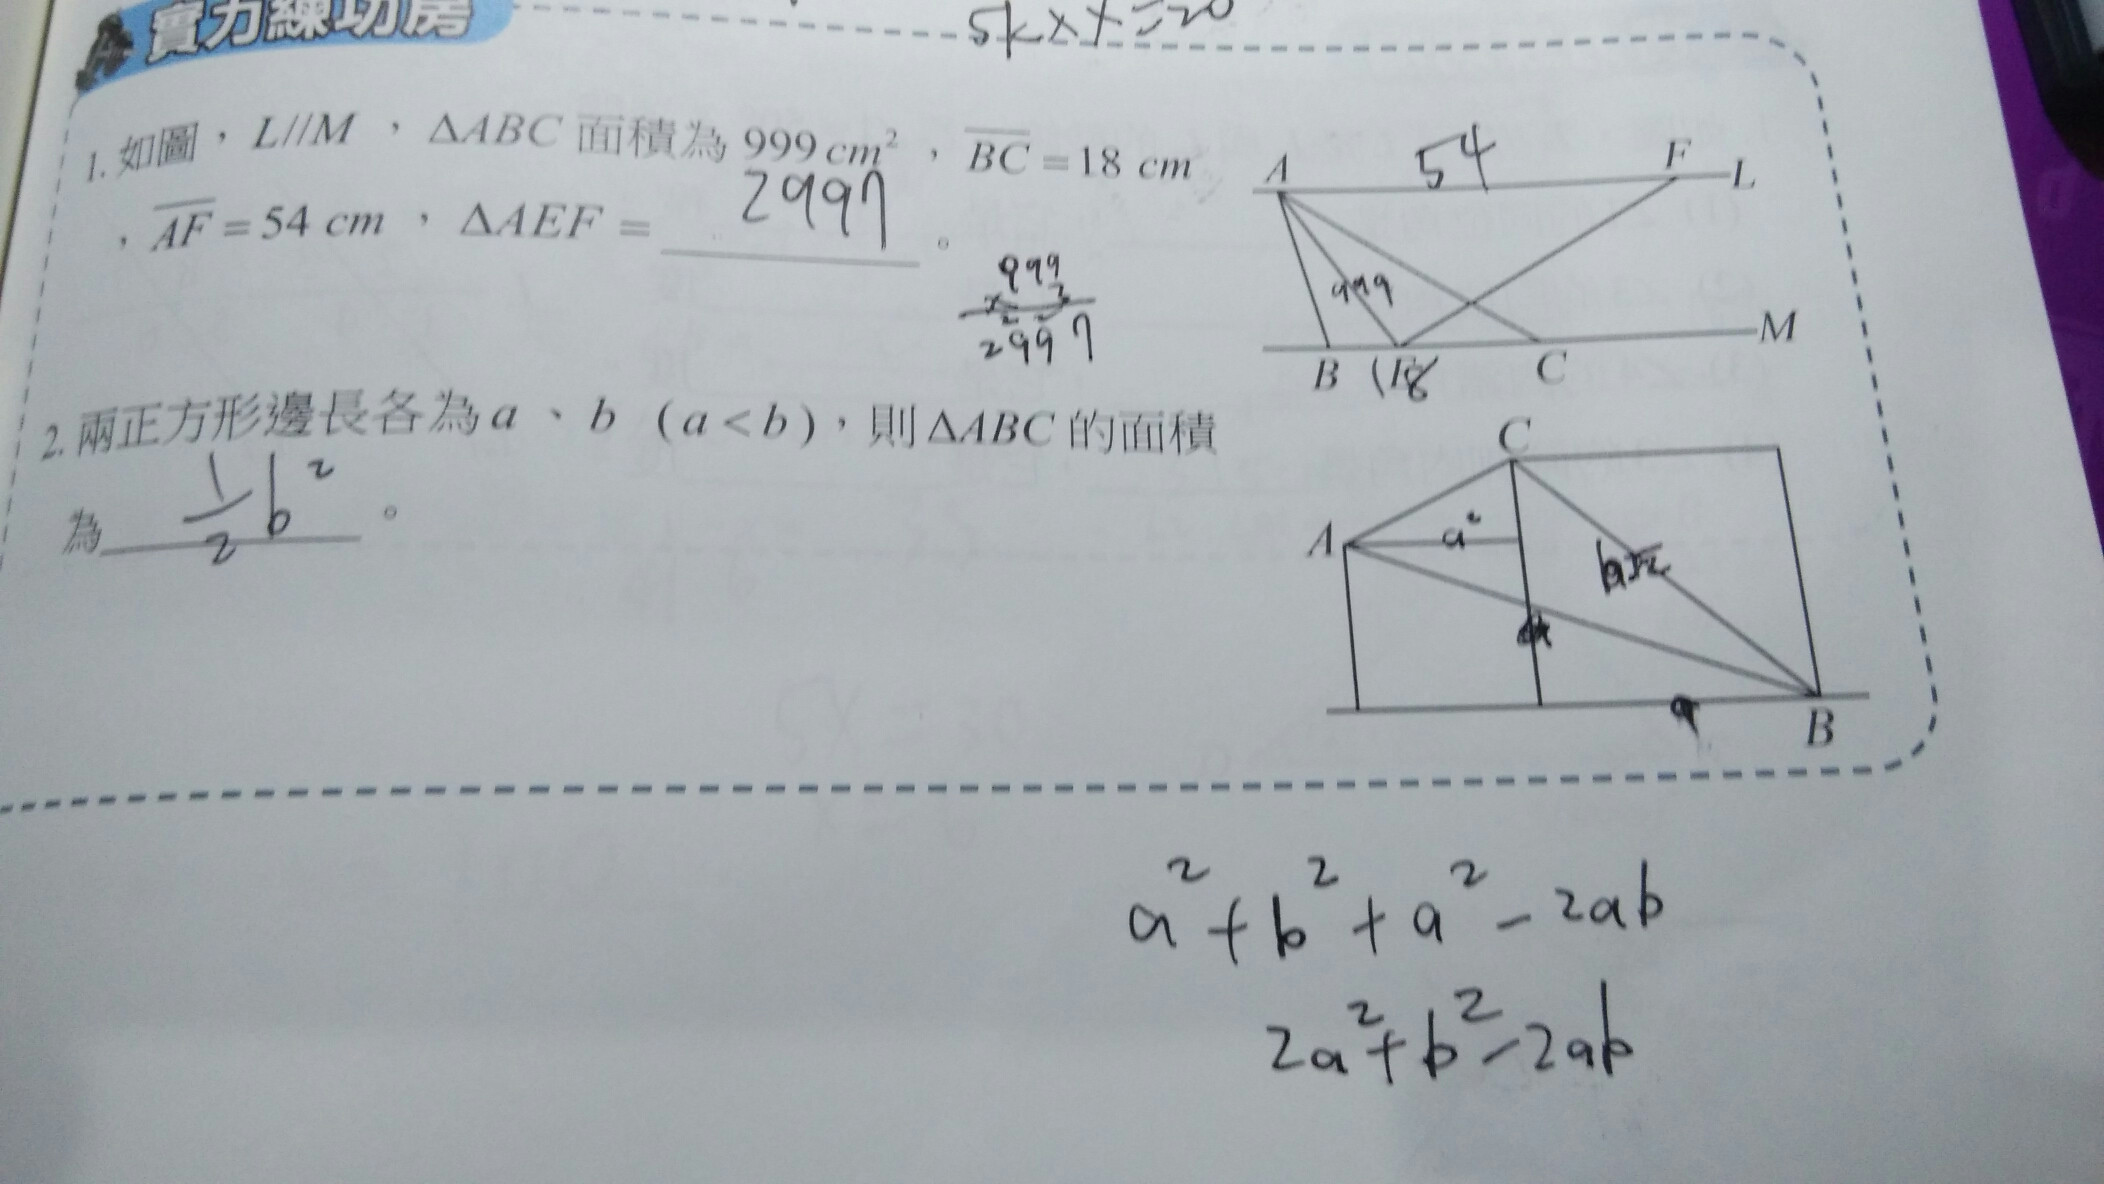 實力練功房
5k×x=20
1.如圖，L//M，ΔABC 面積為 999 cm²，BC = 18 cm
，AF = 54 cm，ΔAEF = 2997。
999
2997
A 54 F L
999
B E 18 C M
2.兩正方形邊長各為 a、b (a < b)，則 ΔABC 的面積
為 1/2 b²。
C
A a² b√2
a B
a²+b²+a²-2ab
2a²+b²-2ab